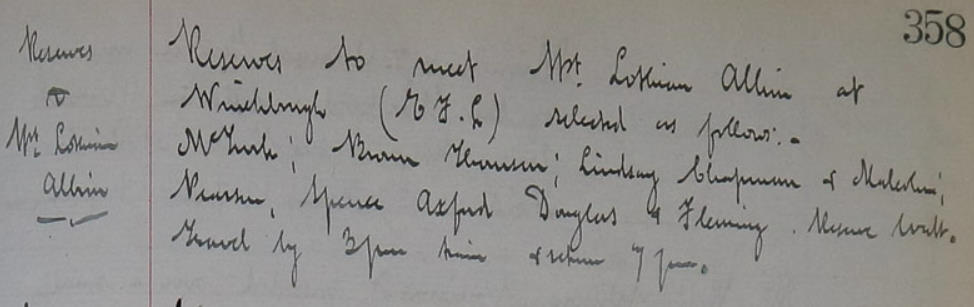 358
Reserves
v
Wt. Lothian
Albion
Reserves to meet Wt. Lothian Albion at
Winchburgh (E.F.L) selected as follows:-
McTurk; Brown Thomson; Lindsay Chapman & Malcolm;
Pearson, Spence Axford Douglas & Fleming. Reserve Watt.
Travel by 3pm train & return 7 pm.